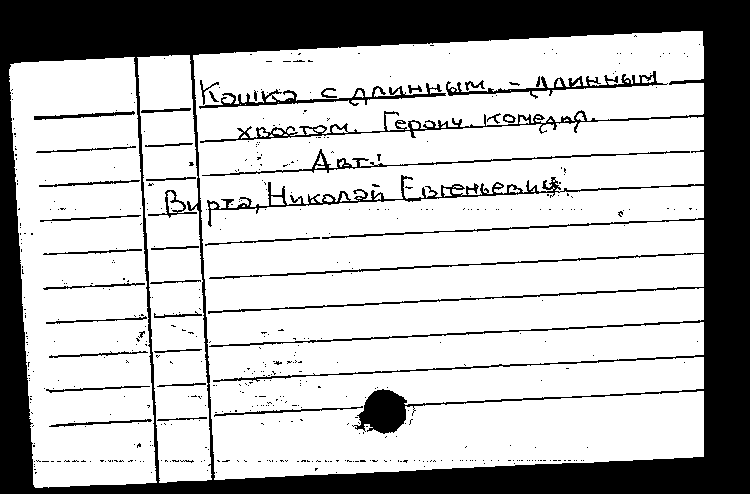 Кошка с длинным - длинным
хвостом. Героич. комедия.
Авт.:
Вирта, Николай Евгеньевич.